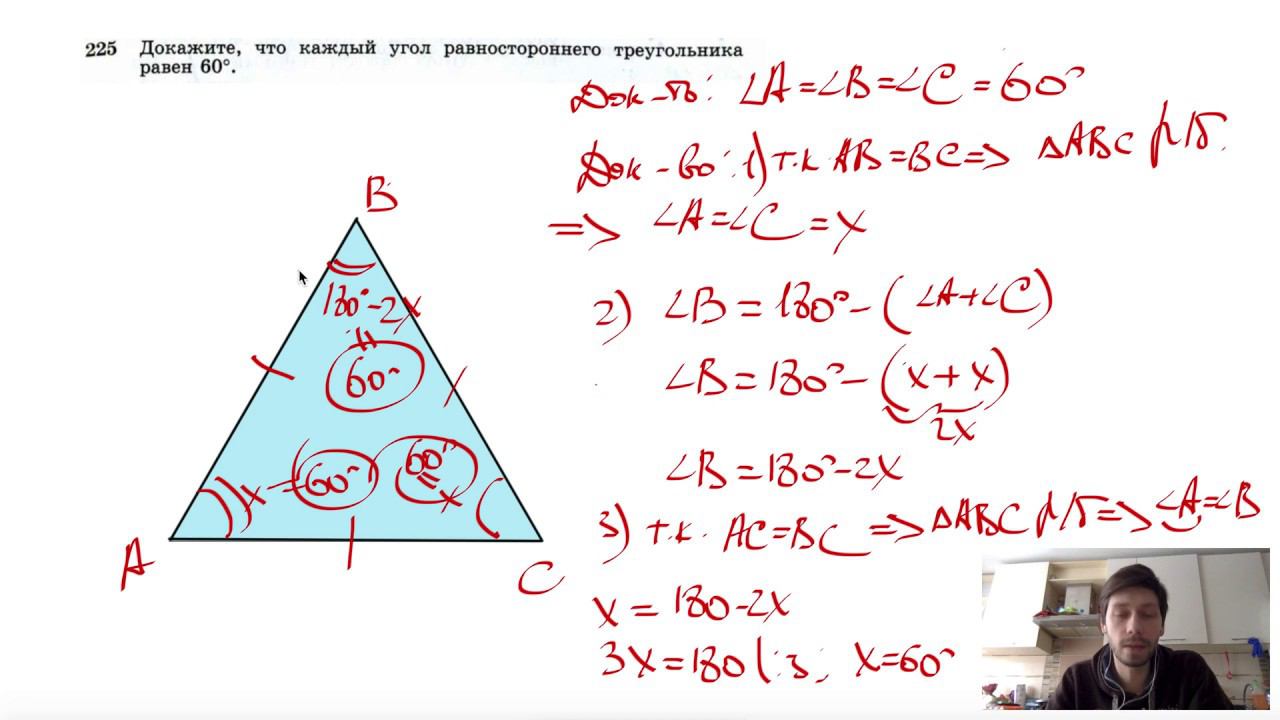 225 Докажите, что каждый угол равностороннего треугольника
равен 60°.
Док-ть: ∠A=∠B=∠C=60°
Док-во: 1) т.к AB=BC=> △ABC р/б.
=> ∠A=∠C=x
2) ∠B=180°-(∠A+∠C)
∠B=180°-(x+x)
2x
∠B=180°-2x
3) т.к. AC=BC => △ABC р/б=> ∠A=∠B
x=180-2x
3x=180 |:3; x=60°
B
180°-2x
=
60°
x=60°
60°
=
x
A
C